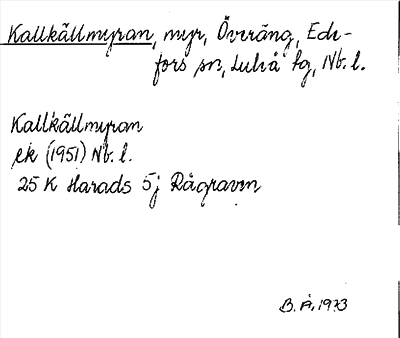 Kallkällmyran, myr, Överäng, Ede-
fors sn, Luleå fg, Nb. l.
Kallkällmyran
ek (1951) Nb. l.
25 K Harads 5j Rågraven
B. Å. 1973